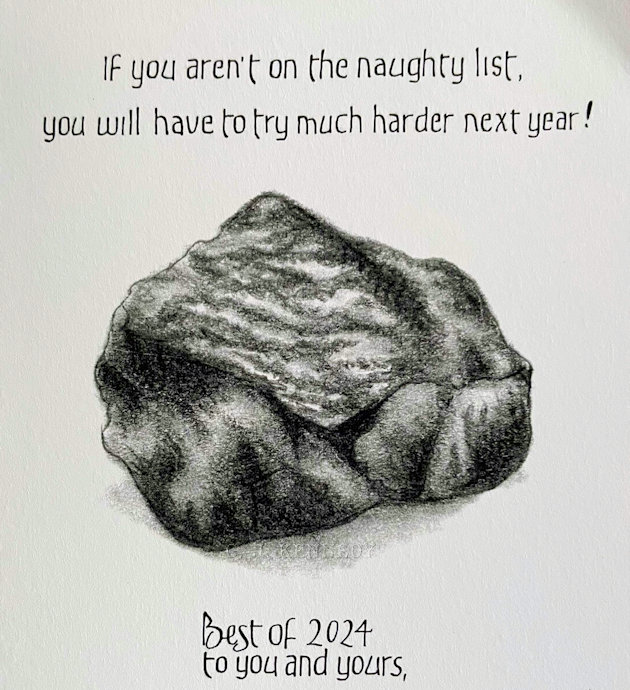 If you aren't on the naughty list,
you will have to try much harder next year!
Best of 2024
to you and yours,